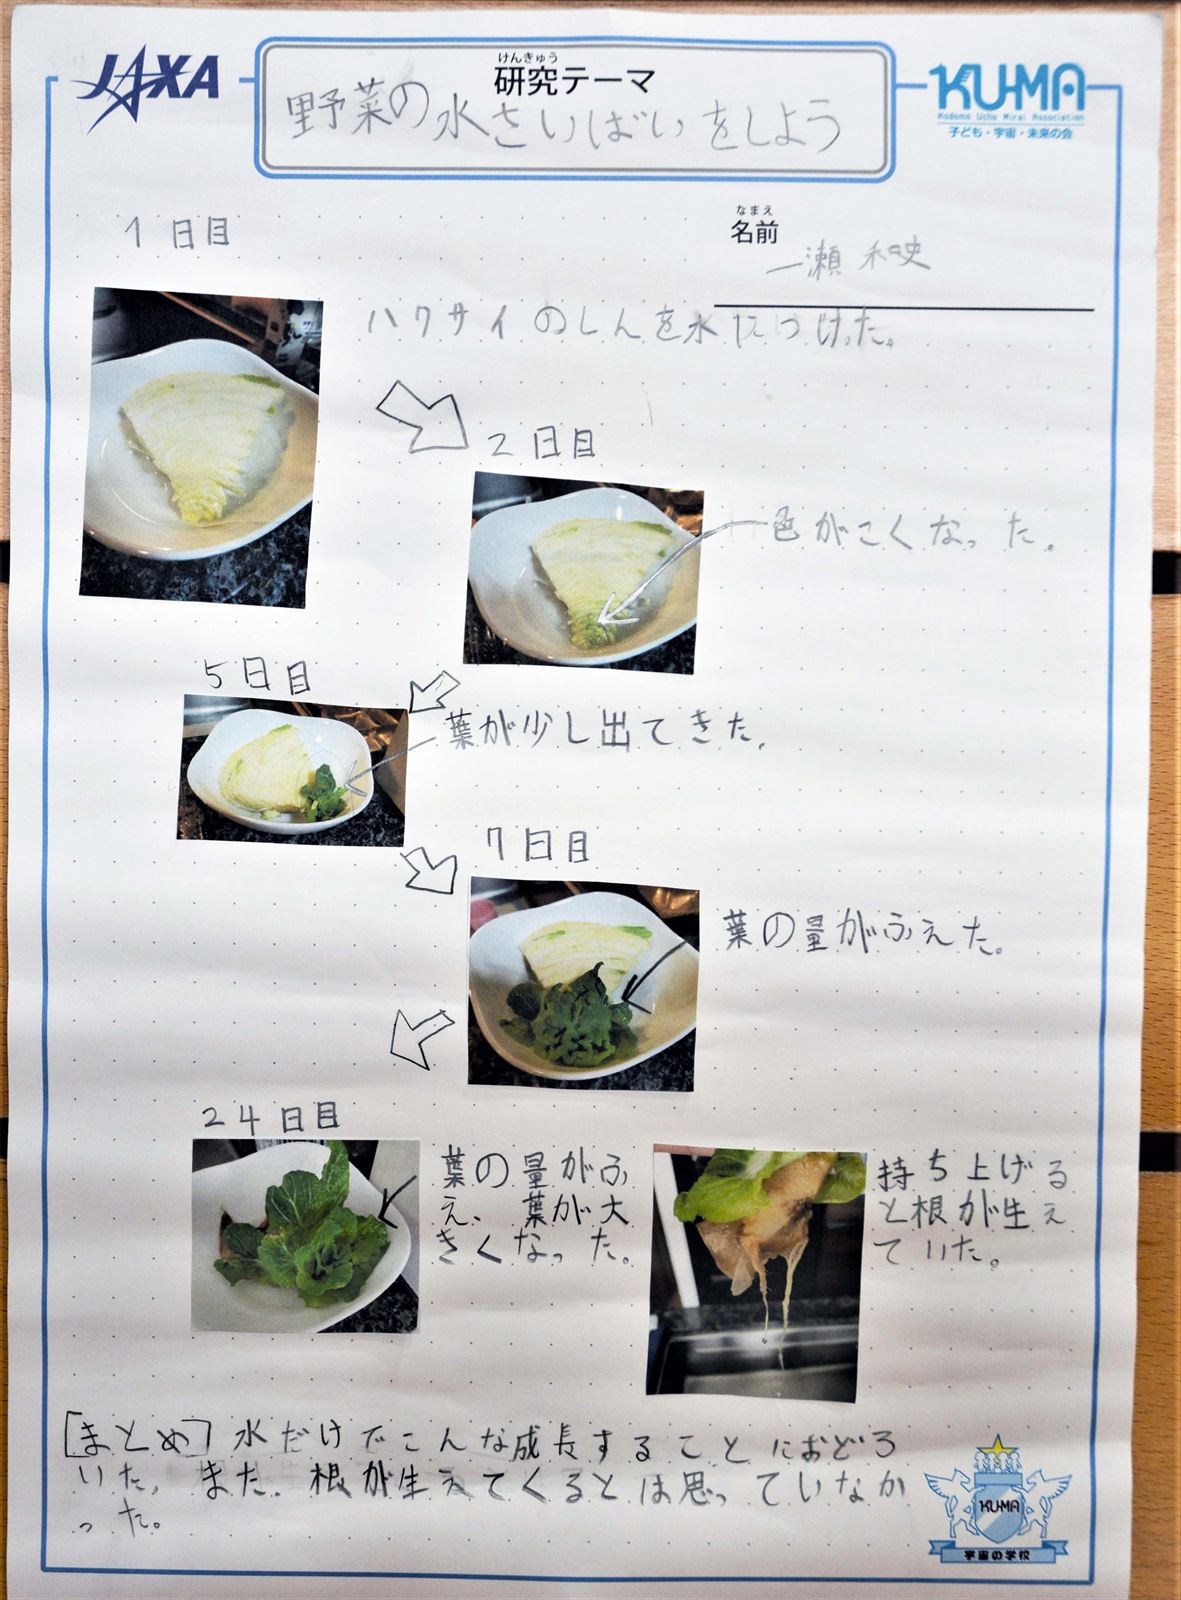 JAXA
けんきゅう
研究テーマ
野菜の水さいばいをしよう
KU-MA
Kodomo Uchu Mirai Association
子ども・宇宙・未来の会
なまえ
名前
一瀬 和史
1日目
ハクサイのしんを水につけた。
2日目
色がこくなった。
5日目
葉が少し出てきた。
7日目
葉の量がふえた。
24日目
葉の量がふ
え、葉が大
きくなった。
持ち上げる
と根が生え
ていた。
[まとめ]水だけでこんな成長することにおどろ
いた。また、根が生えてくるとは思っていなか
った。
KU-MA
宇宙の学校